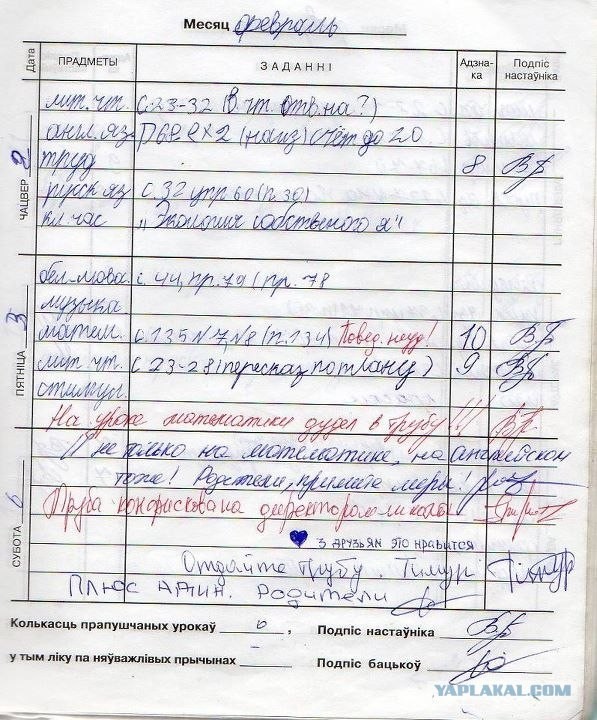 Месяц февраль
Дата ПРАДМЕТЫ ЗАДАННІ Адзна-ка Подпіс настаўніка
ЧАЦВЕР 2
лит. чт. с. 23-32 (в. чт. отв. на ?)
англ. яз. П 6 Р. 2 х 2 (наиз) счёт до 20
труд 8 ВБ
с. 32 упр 60 (п. 30)
кл. час „Экология собственного я"
ПЯТНІЦА 3
бел. мова. с. 44, пр. 79 (пр. 78
музыка.
матем. с. 135 N7 N8 (п. 134) Повед. неуд! 10 ВБ
лит. чт. с 23-28 (пересказ по плану) 9 ВБ
стимул.
На уроке математики дудел в трубу!!! ВБ
СУБОТА 6
И не только на математике, на английском
тоже! Родители, примите меры!
Труба конфискована директором школы!
3 друзьям это нравится
Отдайте трубу. Тимур Тимур
Плюс адин. Родители
Колькасць прапушчаных урокаў 6, Подпіс настаўніка ВБ
у тым ліку па няўважлівых прычынах – Подпіс бацькоў
YAPLAKAL.COM